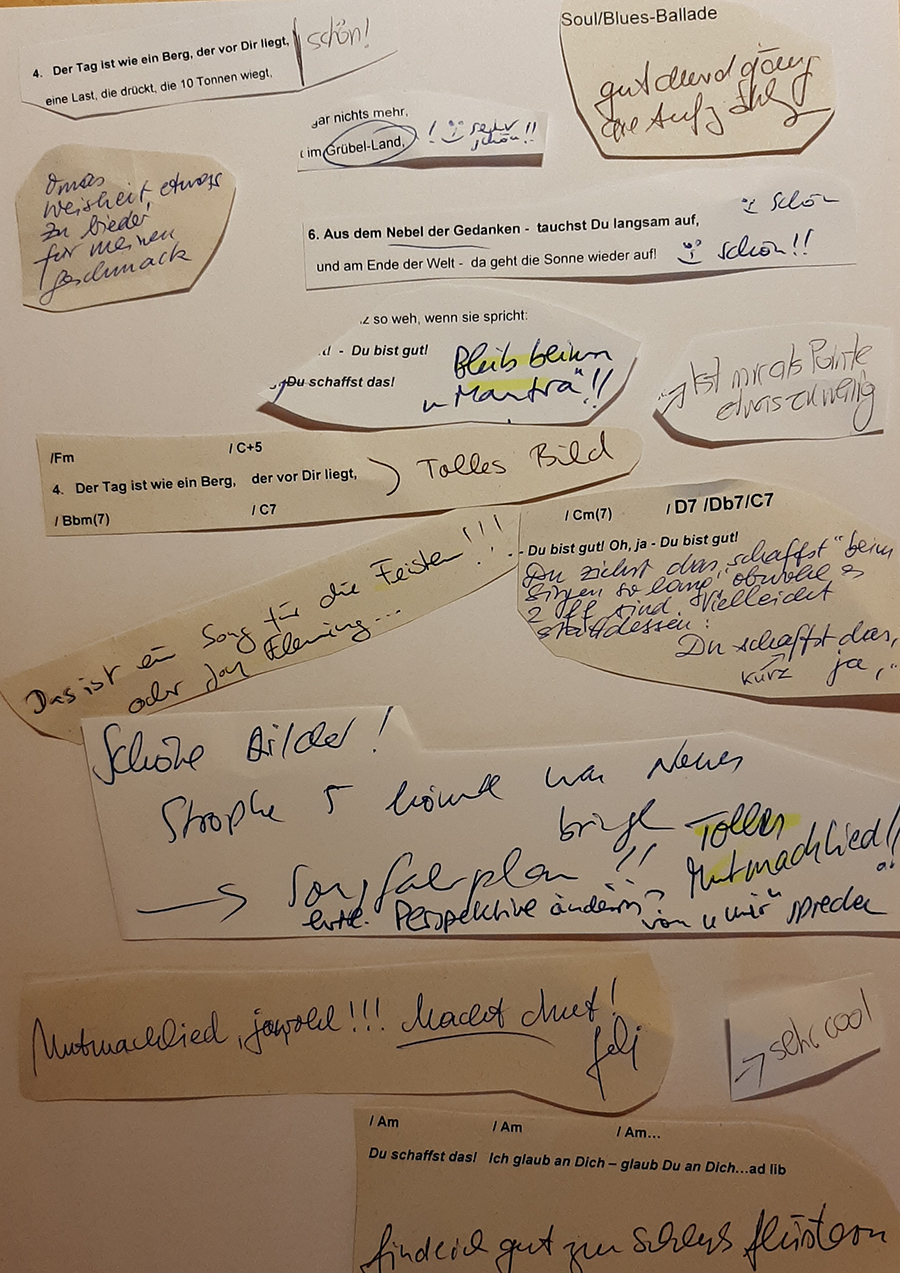 4. Der Tag ist wie ein Berg, der vor Dir liegt, schön!
eine Last, die drückt, die 10 Tonnen wiegt,
Soul/Blues-Ballade
gut durchgängig
die Aufzählg
gar nichts mehr,
im Grübel-Land, ! sehr
schön!!
Omas
Weisheit, etwas
zu bieder
für meinen
Geschmack
schön
6. Aus dem Nebel der Gedanken - tauchst Du langsam auf,
und am Ende der Welt - da geht die Sonne wieder auf! schön!!
so weh, wenn sie spricht:
- Du bist gut!
Du schaffst das!
Bleib beim
"Mantra"!!
→ Ist mir als Pointe
etwas zu wenig
/Fm / C+5
4. Der Tag ist wie ein Berg, der vor Dir liegt, ) Tolles Bild
/ Bbm(7) / C7
Das ist ein Song für die Feisten!!!
oder Jon Fleming...
/ Cm(7) / D7 /Db7/C7
- Du bist gut! Oh, ja - Du bist gut!
Du ziehst das "schaffst" beim
Singen so lang, obwohl es
2 ff sind. Vielleicht
stattdessen:
Du schaffst das,
kurz ja,"
Schöne Bilder!
Strophe 5 könnte was Neues
bringen
Tolles
Mutmachlied!!
→ Songfahrplan!!
Perspektive ändern → von "mir" sprechen
Mutmachlied, jawohl!!! Macht Mut!
→ sehr cool
/ Am / Am / Am...
Du schaffst das! Ich glaub an Dich – glaub Du an Dich...ad lib
finde ich gut zum Schluss flüstern